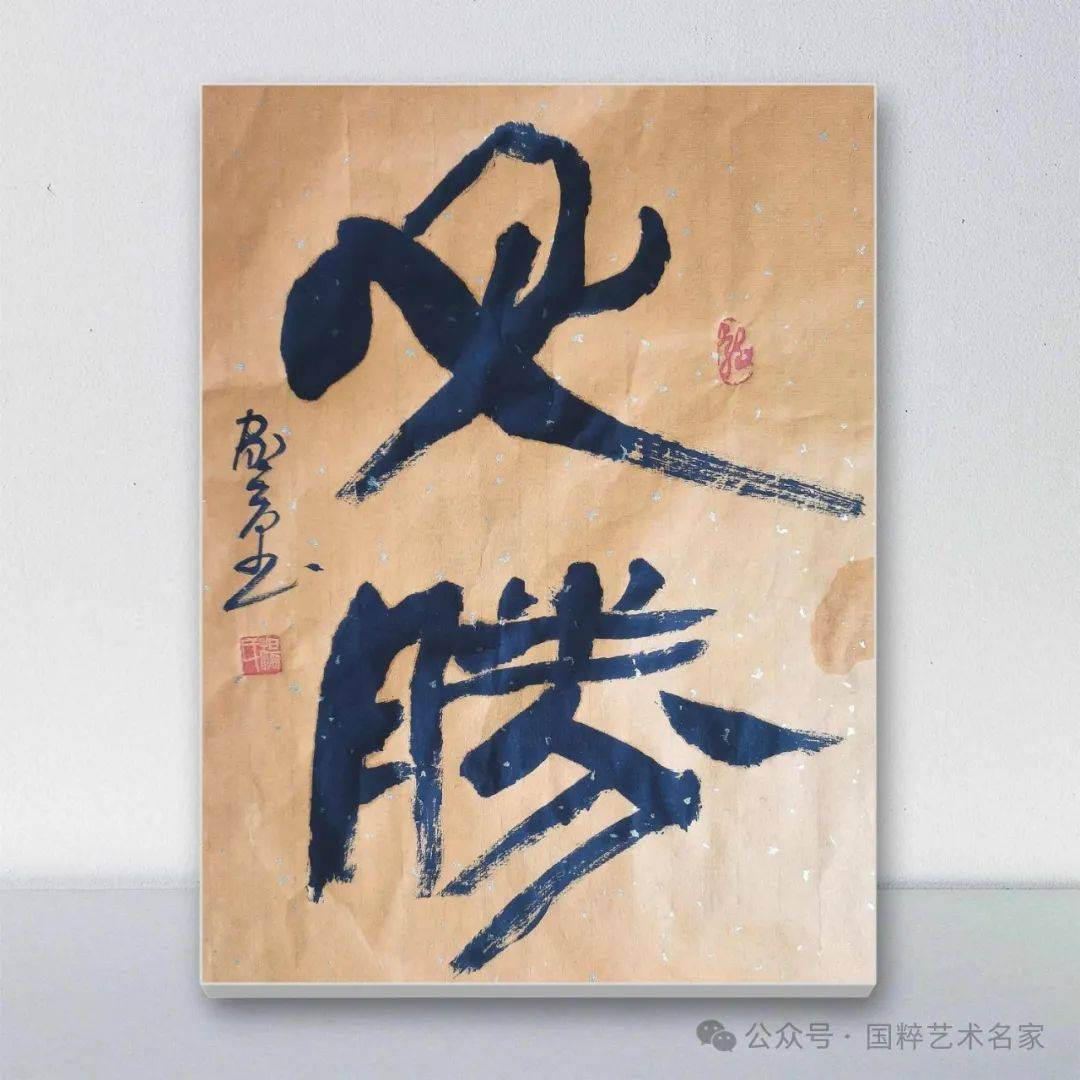 必勝
公众号 · 国粹艺术名家